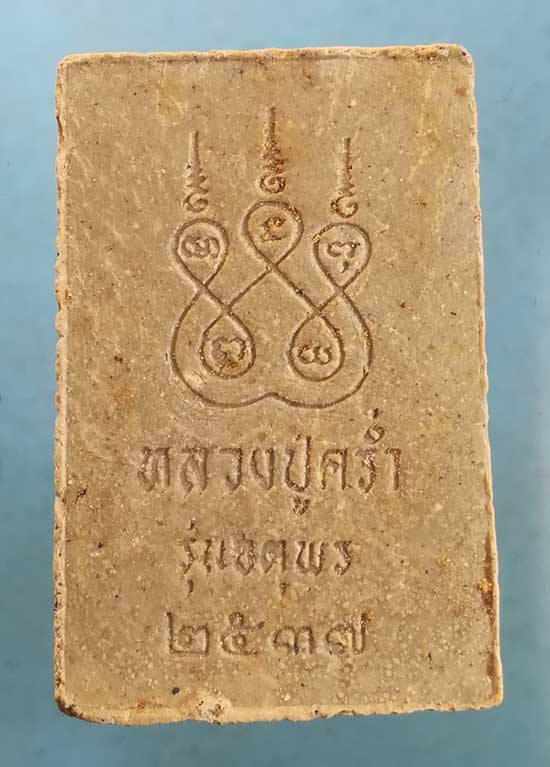 หลวงปู่คร่ำ
รุ่นจตุพร
๒๕๓๗